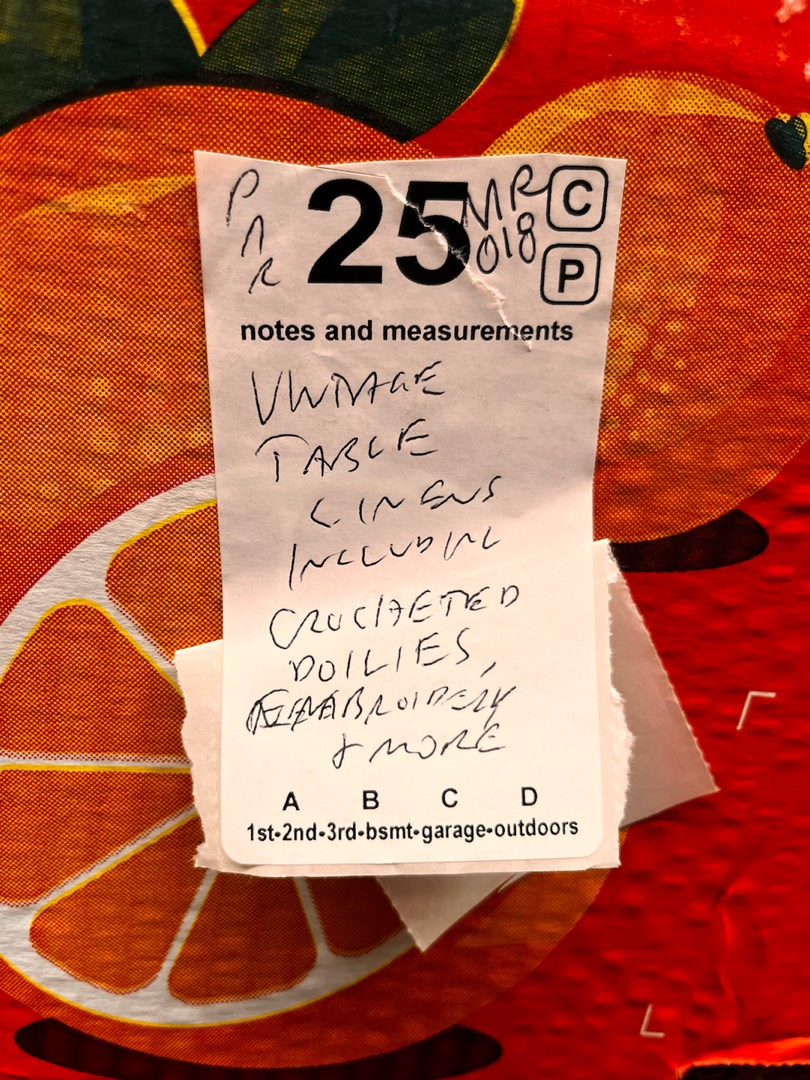 PAR 25 MR 018 C
P
notes and measurements
VINTAGE
TABLE
LINENS
INCLUDING
CROCHETED
DOILIES,
EMBROIDERY
& MORE
A B C D
1st•2nd•3rd•bsmt•garage•outdoors